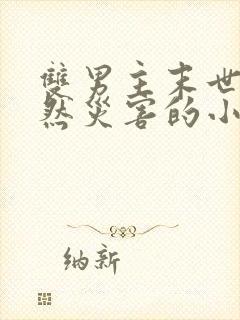 雙男主末世
然災害的小
纳新